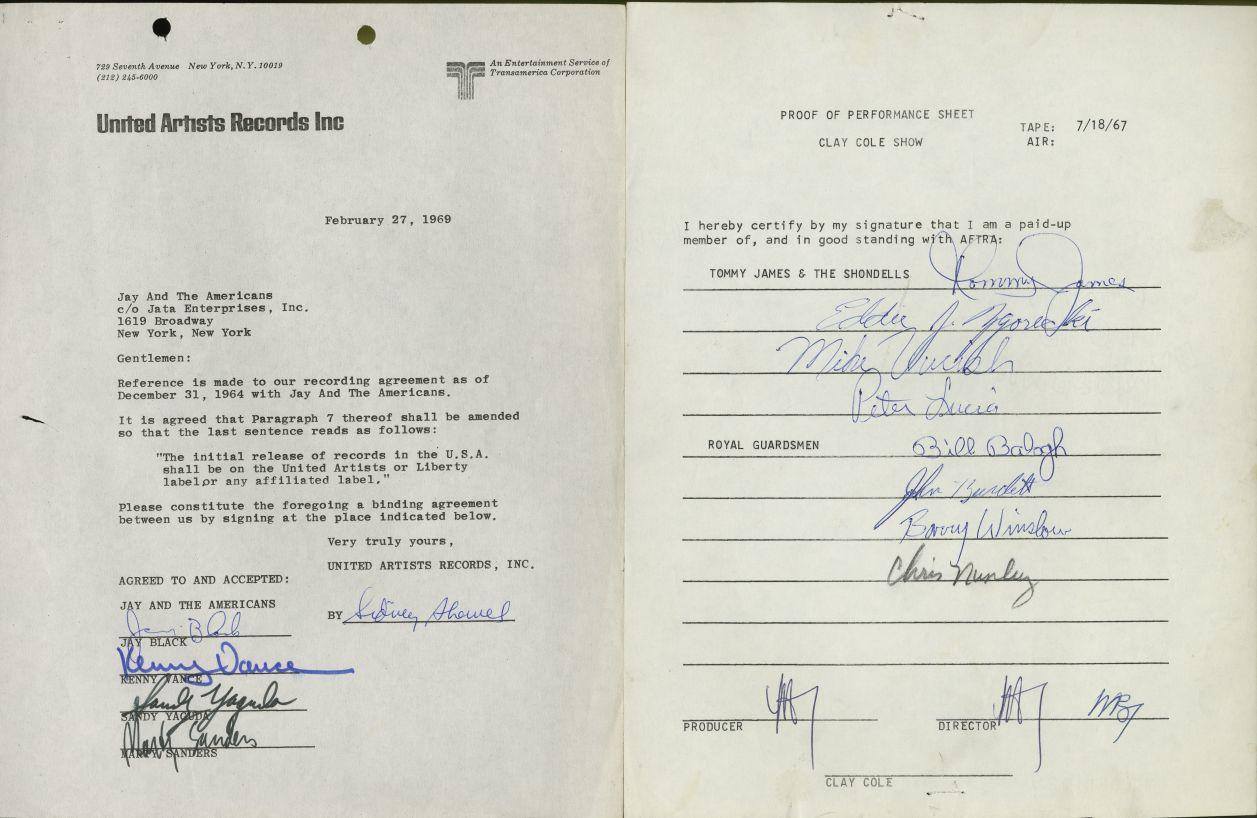 729 Seventh Avenue New York, N.Y. 10019
(212) 245-6000
An Entertainment Service of
Transamerica Corporation
United Artists Records Inc
February 27, 1969
Jay And The Americans
c/o Jata Enterprises, Inc.
1619 Broadway
New York, New York
Gentlemen:
Reference is made to our recording agreement as of
December 31, 1964 with Jay And The Americans.
It is agreed that Paragraph 7 thereof shall be amended
so that the last sentence reads as follows:
"The initial release of records in the U.S.A.
shall be on the United Artists or Liberty
label,or any affiliated label."
Please constitute the foregoing a binding agreement
between us by signing at the place indicated below.
Very truly yours,
UNITED ARTISTS RECORDS, INC.
AGREED TO AND ACCEPTED:
JAY AND THE AMERICANS
BY Sidney Shemel
Jay Black
JAY BLACK
Kenny Vance
KENNY VANCE
Sandy Yaguda
SANDY YAGUDA
Marty Sanders
MARTY SANDERS
PROOF OF PERFORMANCE SHEET
CLAY COLE SHOW
TAPE: 7/18/67
AIR:
I hereby certify by my signature that I am a paid-up
member of, and in good standing with AFTRA:
TOMMY JAMES & THE SHONDELLS Tommy James
Eddie J.
Mike
Peter Lucia
ROYAL GUARDSMEN Bill Balogh
John Burdett
Barry Winslow
Chris Nunley
PRODUCER
DIRECTOR
CLAY COLE